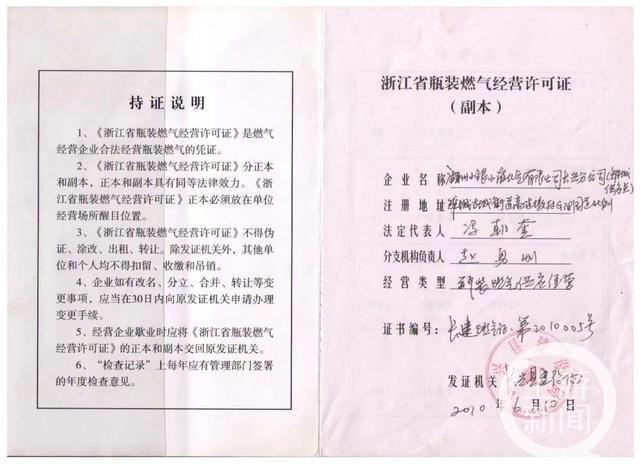 持证说明
1、《浙江省瓶装燃气经营许可证》是燃气
经营企业合法经营瓶装燃气的凭证。
2、《浙江省瓶装燃气经营许可证》分正本
和副本，正本和副本具有同等法律效力。《浙
江省瓶装燃气经营许可证》正本必须放在单位
经营场所醒目位置。
3、《浙江省瓶装燃气经营许可证》不得伪
证、涂改、出租、转让。除发证机关外，其他单
位和个人均不得扣留、收缴和吊销。
4、企业如有改名、分立、合并、转让等变
更事项，应当在30日内向原发证机关申请办理
变更手续。
5、经营企业歇业时应将《浙江省瓶装燃气
经营许可证》的正本和副本交回原发证机关。
6、“检查记录”上每年应有管理部门签署
的年度检查意见。
浙江省瓶装燃气经营许可证
（副本）
企业名称 湖州小银山液化气有限公司长兴分公司
注册地址
法定代表人 冯朝奎
分支机构负责人
经营类型 瓶装燃气供应经营
证书编号：长建燃气证·第2010005号
发证机关
2010年6月10日
上游新闻